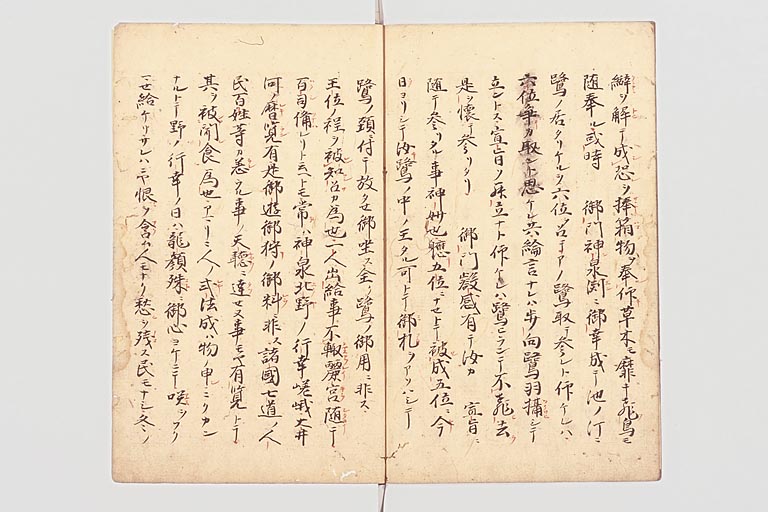 辮ヲ解テ成恐ヲ捧箱物ヲ奉仰草木モ靡キ飛鳥モ
随奉ル或時 御門神泉渕ニ御幸成テ池ノ汀ニ
鷺ノ居タリケルヲ六位ヲ召テアノ鷺取テ参ント仰ケレハ
六位争カ取ント思ケレ共綸言ナレハ歩ノ向鷺羽攝シテ
立ントス宣旨ソ鷺立ナト仰ケレハ鷺ヒランテ不飛去
是ヲ懐テ参リタリ 御門叡感有テ汝カ 宣旨ニ
随テ参リタル事神妙也軈五位ニナセトテ被成五位ニ今
日ヨリシテ汝鷺ノ中ノ王タル可トテ御札ヲアソハシテ
鷺ノ頚ニ付テ放タセ御坐ス全ク鷺ノ御用ニ非ス
王位ノ程ヲ被知召カ為也一人出給事不輙麗宮随テ
百司備レリト云ヘトモ常ハ神泉北野ノ行幸嵯峨大井
河ノ暦覧有是御遊御狩ノ御料ニ非ス諸國七道ノ人
民百姓等カ愁タル事ノ天聴ニ達セヌ事モヤ有覧トテ
其ヲ被聞食為也アリシ人ノ式法成ハ物申ニクカン
ナルトテ野ノ行幸ノ日ハ龍顔殊ニ御心ヨケニテ咲ヲフク
マセ給ケリサレハニヤ恨ヲ含ム人モナク愁ヲ残ス民モナシ冬ノ